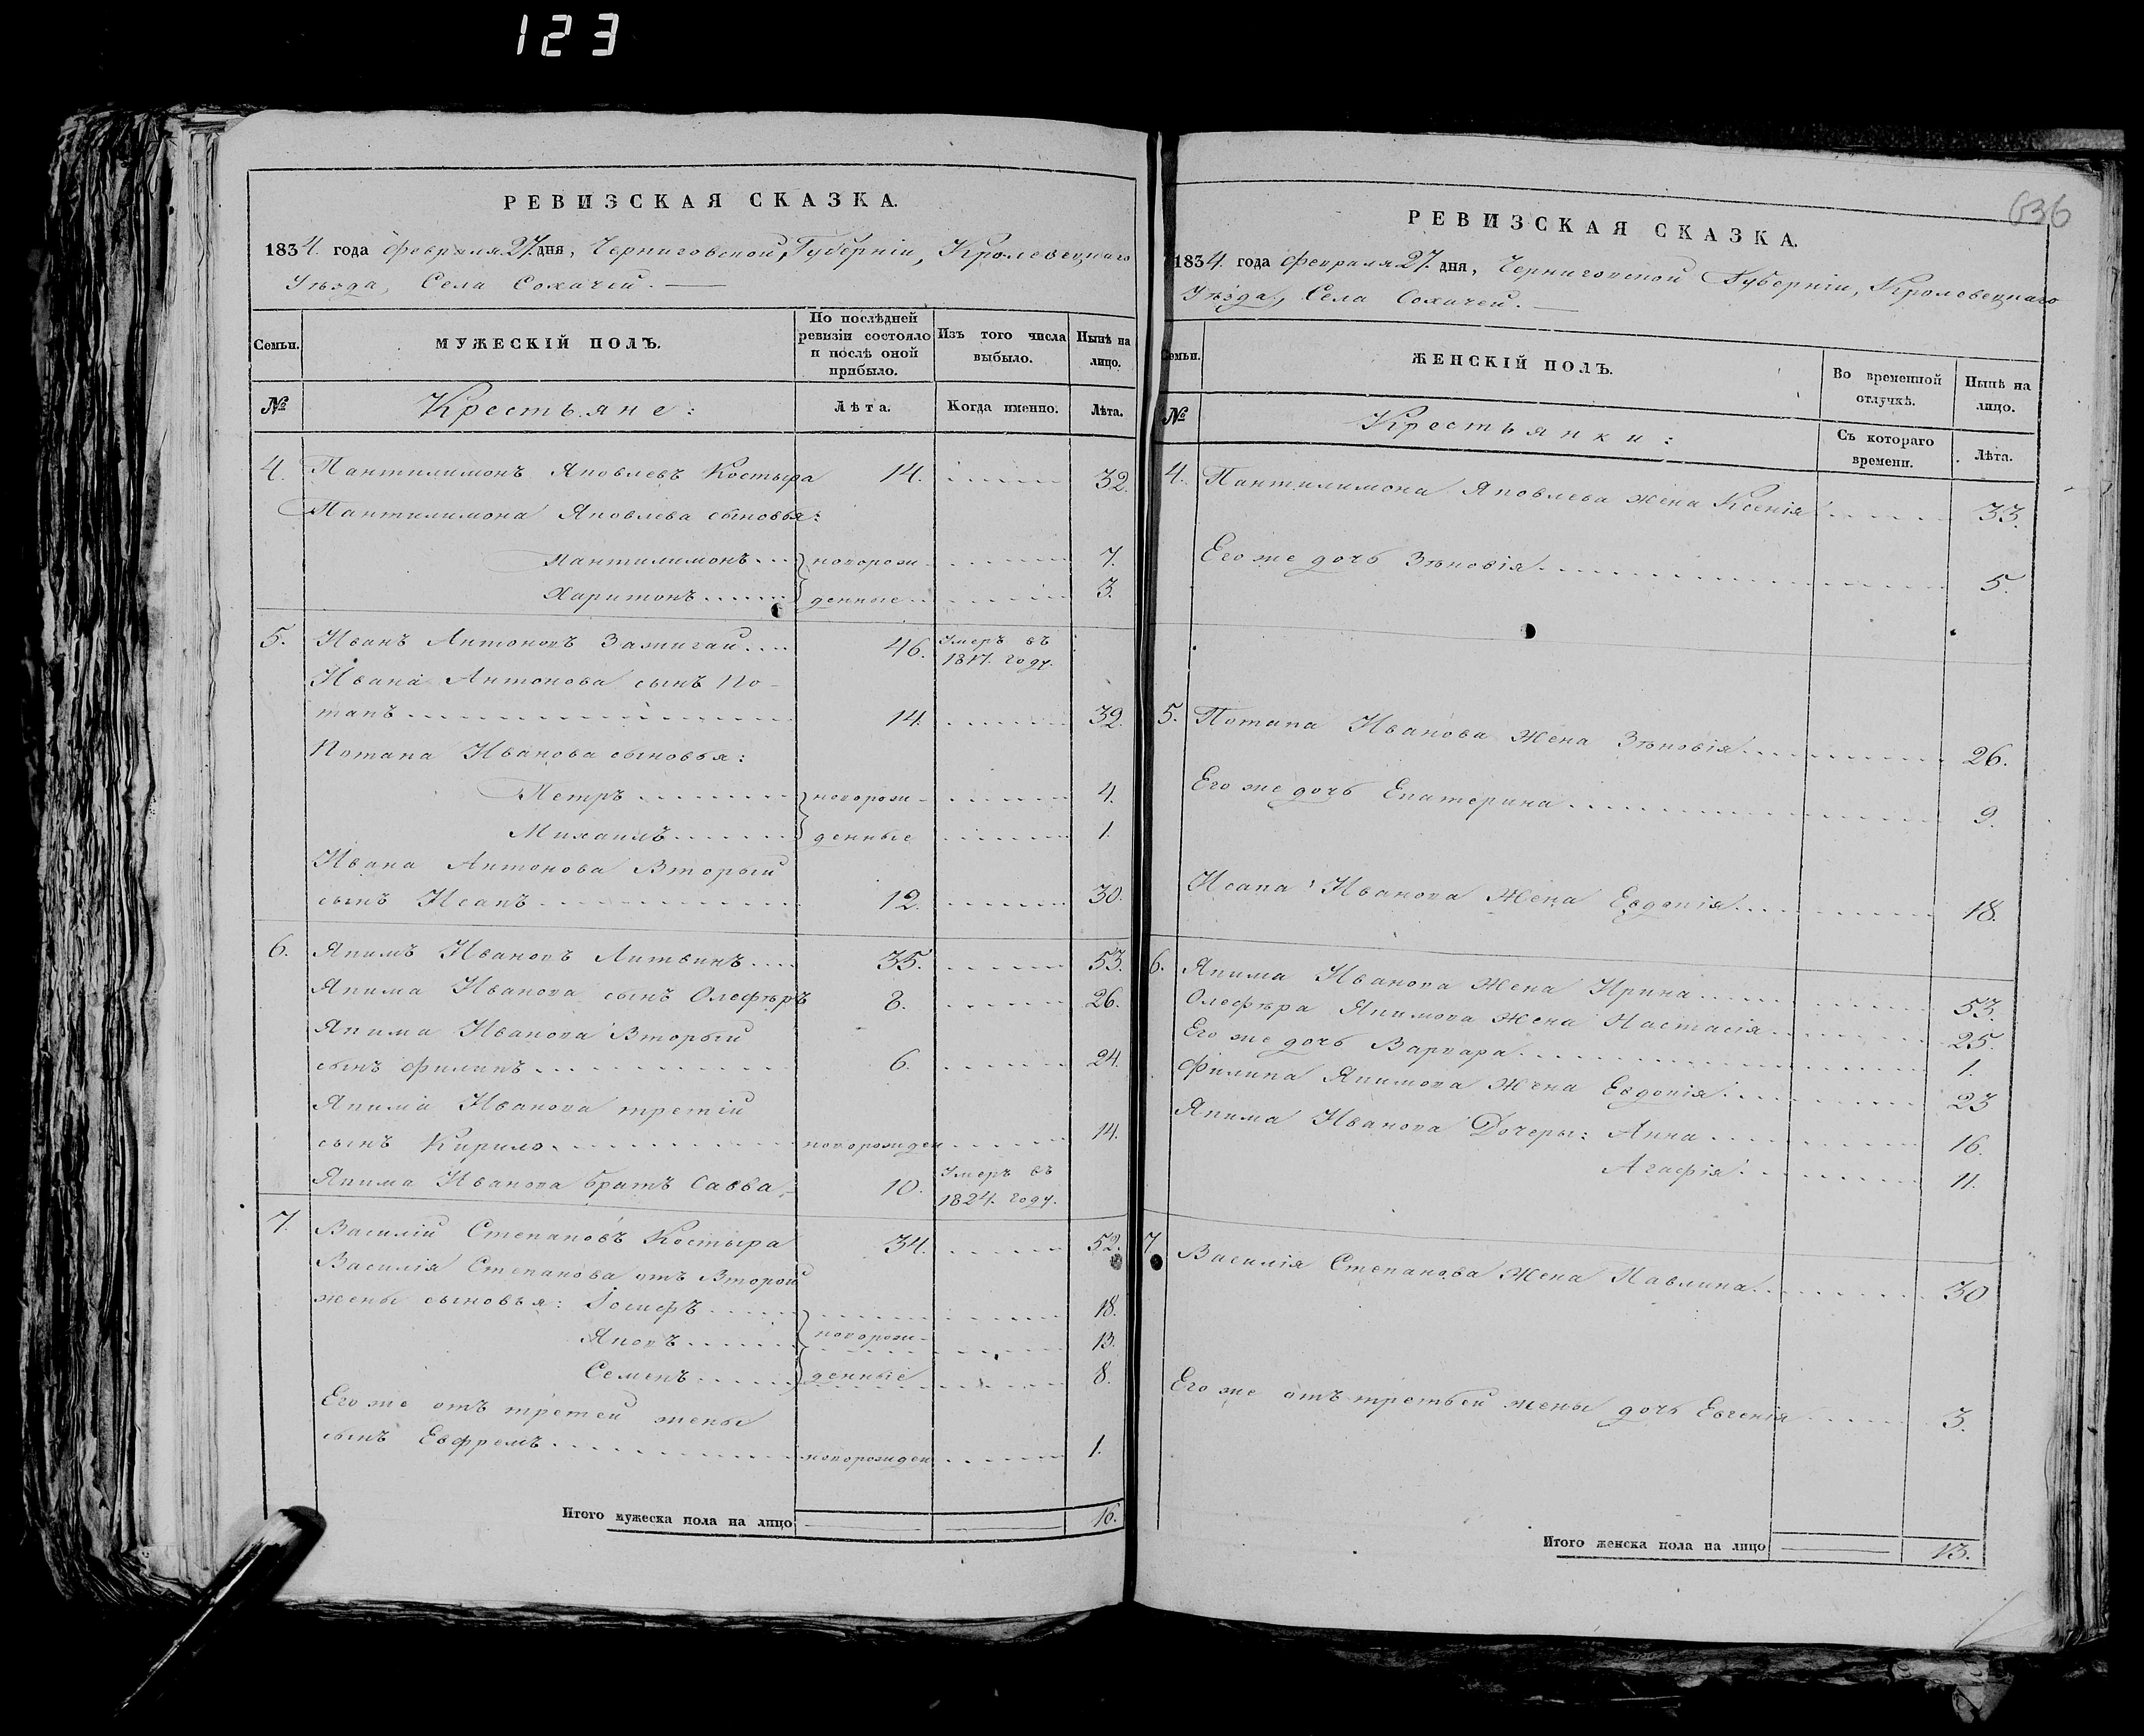 123
РЕВИЗСКАЯ СКАЗКА.
1834. года Февраля 27. дня, Черниговской Губерніи, Кролевецкаго
Уѣзда, Села Сохачей.
Семьи. МУЖЕСКІЙ ПОЛЪ. По послѣдней ревизіи состояло и послѣ оной прибыло. Изъ того числа выбыло. Нынѣ на лицо.
№ Крестьяне: Лѣта. Когда именно. Лѣта.
4. Пантилимонъ Яковлевъ Костыра 14. 32.
Пантилимона Яковлева сыновья:
Пантилимонъ новорож- 7.
Харитонъ денные 3.
5. Иванъ Антоновъ Зажигай 46. Умеръ въ 1817. году.
Ивана Антонова сынъ По-
тапъ 14. 32.
Потапа Иванова сыновья:
Петръ новорож- 4.
Михаилъ денные 1.
Ивана Антонова Вторый
сынъ Исакъ 12. 30.
6. Якимъ Ивановъ Литвинъ 35. 53.
Якима Иванова сынъ Олефѣръ 8. 26.
Якима Иванова Вторый
сынъ Филипъ 6. 24.
Якима Иванова третій
сынъ Кирило новорожден 14.
Якима Иванова братъ Савва 10. Умеръ въ 1824. году.
7. Василій Степановъ Костыра 34. 52.
Василія Степанова отъ Второй
жены сыновья: Іосифъ 18.
Яковъ новорож- 13.
Семенъ денные 8.
Его же отъ третей жены
сынъ Евфремъ новорожден 1.
Итого мужеска пола на лицо 16.
636
РЕВИЗСКАЯ СКАЗКА.
1834. года Февраля 27. дня, Черниговской Губерніи, Кроловецкаго
Уѣзда, Села Сохачей.
Семьи. ЖЕНСКІЙ ПОЛЪ. Во временной отлучкѣ. Нынѣ на лицо.
№ Крестьянки: Съ котораго времени. Лѣта.
4. Пантилимона Яковлева жена Ксенія 33.
Его же дочь Зѣновія 5.
5. Потапа Иванова Жена Зѣновія 26.
Его же дочь Екатерина 9.
Исака Иванова Жена Евдокія 18.
6. Якима Иванова Жена Ирина 53.
Олефѣра Якимова Жена Настасія 25.
Его же дочь Варвара 1.
Филипа Якимова Жена Евдокія 23
Якима Иванова Дочеры: Анна 16.
Агафія 11.
7. Василія Степанова Жена Павлина 30
Его же отъ третьей жены дочь Евгенія 3.
Итого женска пола на лицо 13.